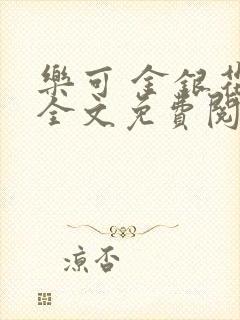 樂可 金銀花
全文免費閱
涼否